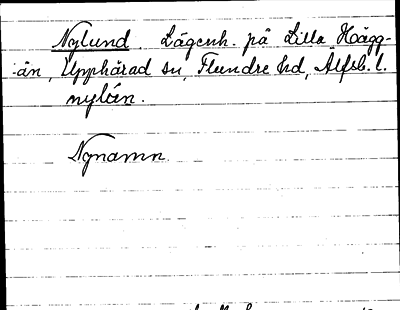 Nylund. Lägenh. på Lilla Hägg-
ån, Upphärad sn, Flundre hd, Älfsb. l.
nylún.
Nynamn